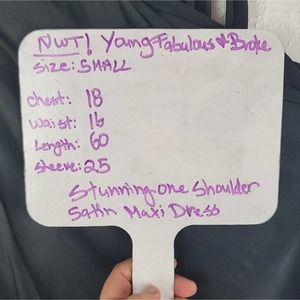 NWT! Young Fabulous & Broke
Size: SMALL
Chest: 18
Waist: 16
Length: 60
Sleeve: 25
Stunning One Shoulder
Satin Maxi Dress